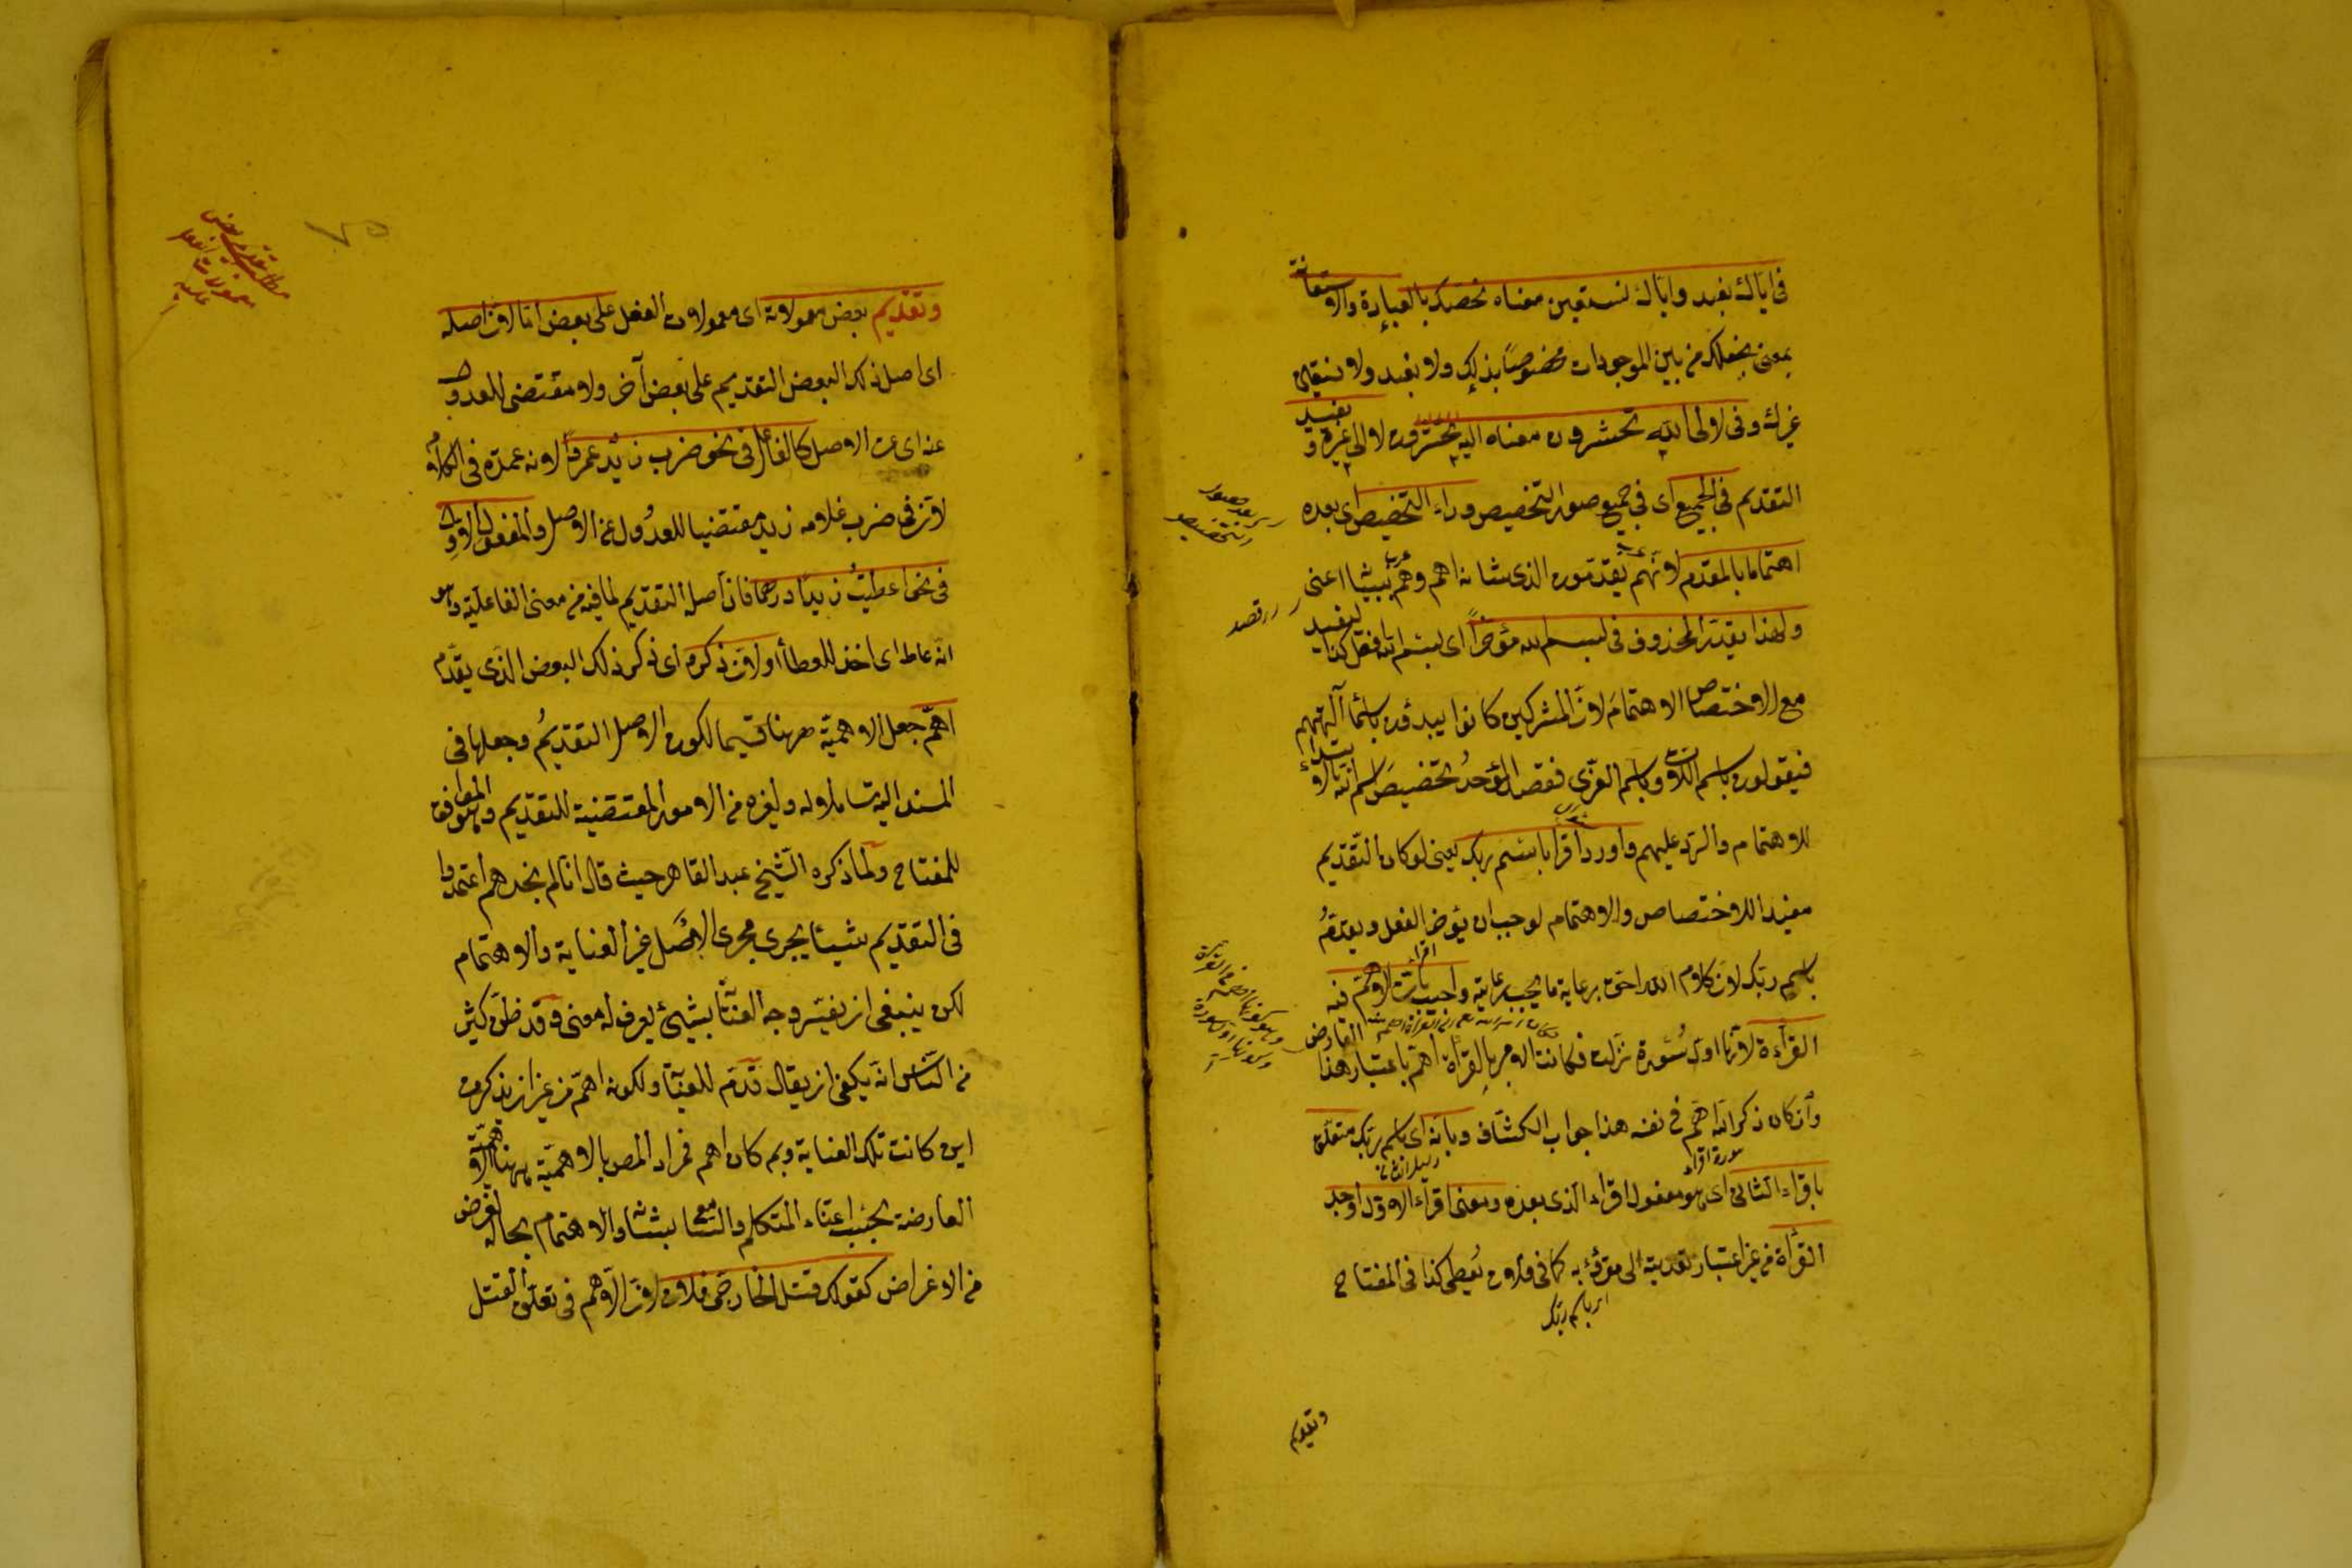 فى اياك نعبد واياك نستعين معناه نخصك بالعبادة والاستعانة
بمعنى نجعلك من بين الموجودات مخصوصاً بذلك ولا نعبد ولا نستعين
غيرك وفى لالى الله تحشرون معناه اليه تحشرون لا الى غيره ويفيد
التقديم فى الجميع اى فى جميع صور التخصيص وراء التخصيص اى بعده
اهتماما بالمقدم لانهم يقدمون الذى شانه اهم وهم ببيانه اعنى
ولهذا يقدر المحذوف فى بسم الله مؤخراً اى بسم الله افعل كذا ليفيد
مع الاختصاص الاهتمام لان المشركين كانوا يبدؤن باسماء آلهتهم
فيقولون باسم اللات وباسم العزى فقصد الموحد تخصيص اسم الله بالابتداء
للاهتمام والرد عليهم واورد اقرا باسم ربك يعنى لو كان التقديم
مفيدا للاختصاص والاهتمام لوجب ان يؤخر الفعل ويقدم
باسم ربك لان كلام الله احق برعاية ما يجب رعايته واجيب بان الاهم فيه
القرأة لانها اول سورة نزلت فكانت الامر بالقرأة اهم باعتبار هذا العارض
وان كان ذكر الله اهم فى نفسه هذا جواب الكشاف وبانه اى باسم ربك متعلق
باقراء الثانى اى هو مفعول اقراء الذى بعده ومعنى اقراء الاول اوجد
القرأة من غير اعتبار تعديته الى مقرؤ به كما فى فلان يعطى كذا فى المفتاح
اى باسم ربك
وتقديم
وتقديم بعض معمولاته اى معمولات الفعل على بعض اما لان اصله
اى اصل ذلك البعض التقديم على بعض آخر ولا مقتضى للعدول
عنه اى عن الاصل كالفاعل فى نحو ضرب زيد عمرواً لانه عمدة فى الكلام
لان فى ضرب غلامه زيد مقتضيا للعدول عن الاصل والمفعول الاول
فى نحو اعطيت زيدا درهما فان اصله التقديم لما فيه من معنى الفاعلية وهو
انه عاط اى اخذ للعطاء او لان ذكره اى ذكر ذلك البعض الذى يقدم
اهم جعل الاهمية ههنا قسيما لكون الاصل التقديم وجعلها فى
المسند اليه شاملا له ولغيره من الامور المقتضية للتقديم وهو الموافق
للمفتاح ولما ذكره الشيخ عبد القاهر حيث قال انا لم نجدهم اعتمدوا
فى التقديم شيئا يجرى مجرى الاصل غير العناية والاهتمام
لكن ينبغى ان يفسر وجه العناية بشئ يعرف له معنى وقد ظن كثير
من الناس انه يكفى ان يقال قدم للعناية ولكونه اهم من غير ان يذكر من
اين كانت تلك العناية وبم كان اهم فمراد المص بالاهمية ههنا الاهمية
العارضة بحسب اعتناء المتكلم والسامع بشانه والاهتمام بحاله لغرض
من الاغراض كقولك قتل الخارجى فلان لان الاهم فى تعلق القتل